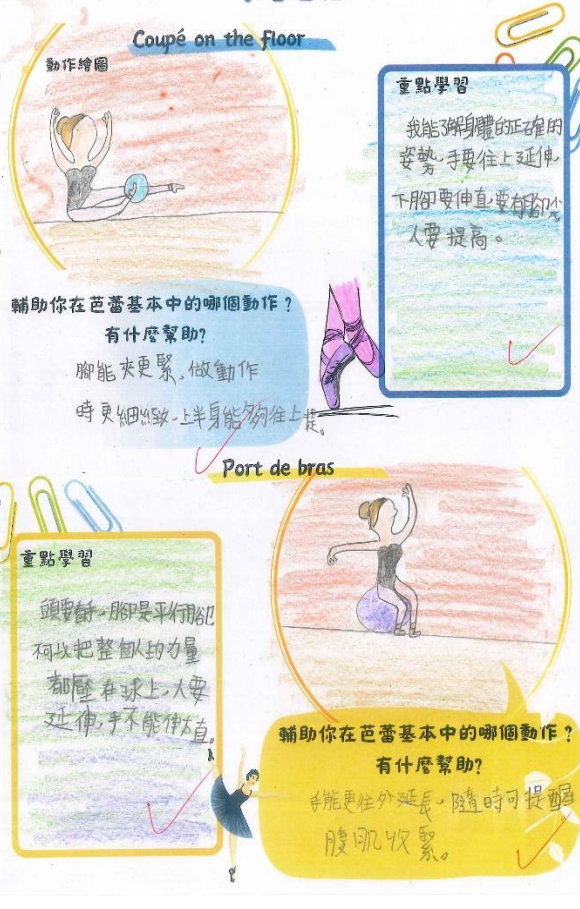 Coupé on the floor
動作繪圖
重點學習
我能了解身體的正確的
姿勢,手要往上延伸,
下腳要伸直,要有腳尖
人要提高。
輔助你在芭蕾基本中的哪個動作?
有什麼幫助?
腳能夾更緊,做動作
時更細緻,上半身能夠往上提。
Port de bras
重點學習
頭要看手,腳是平行腳
不可以把整個人的力量
都壓在球上,人要
延伸,手不能伸太直。
輔助你在芭蕾基本中的哪個動作?
有什麼幫助?
手能更往外延長,隨時可提醒
腹肌收緊。